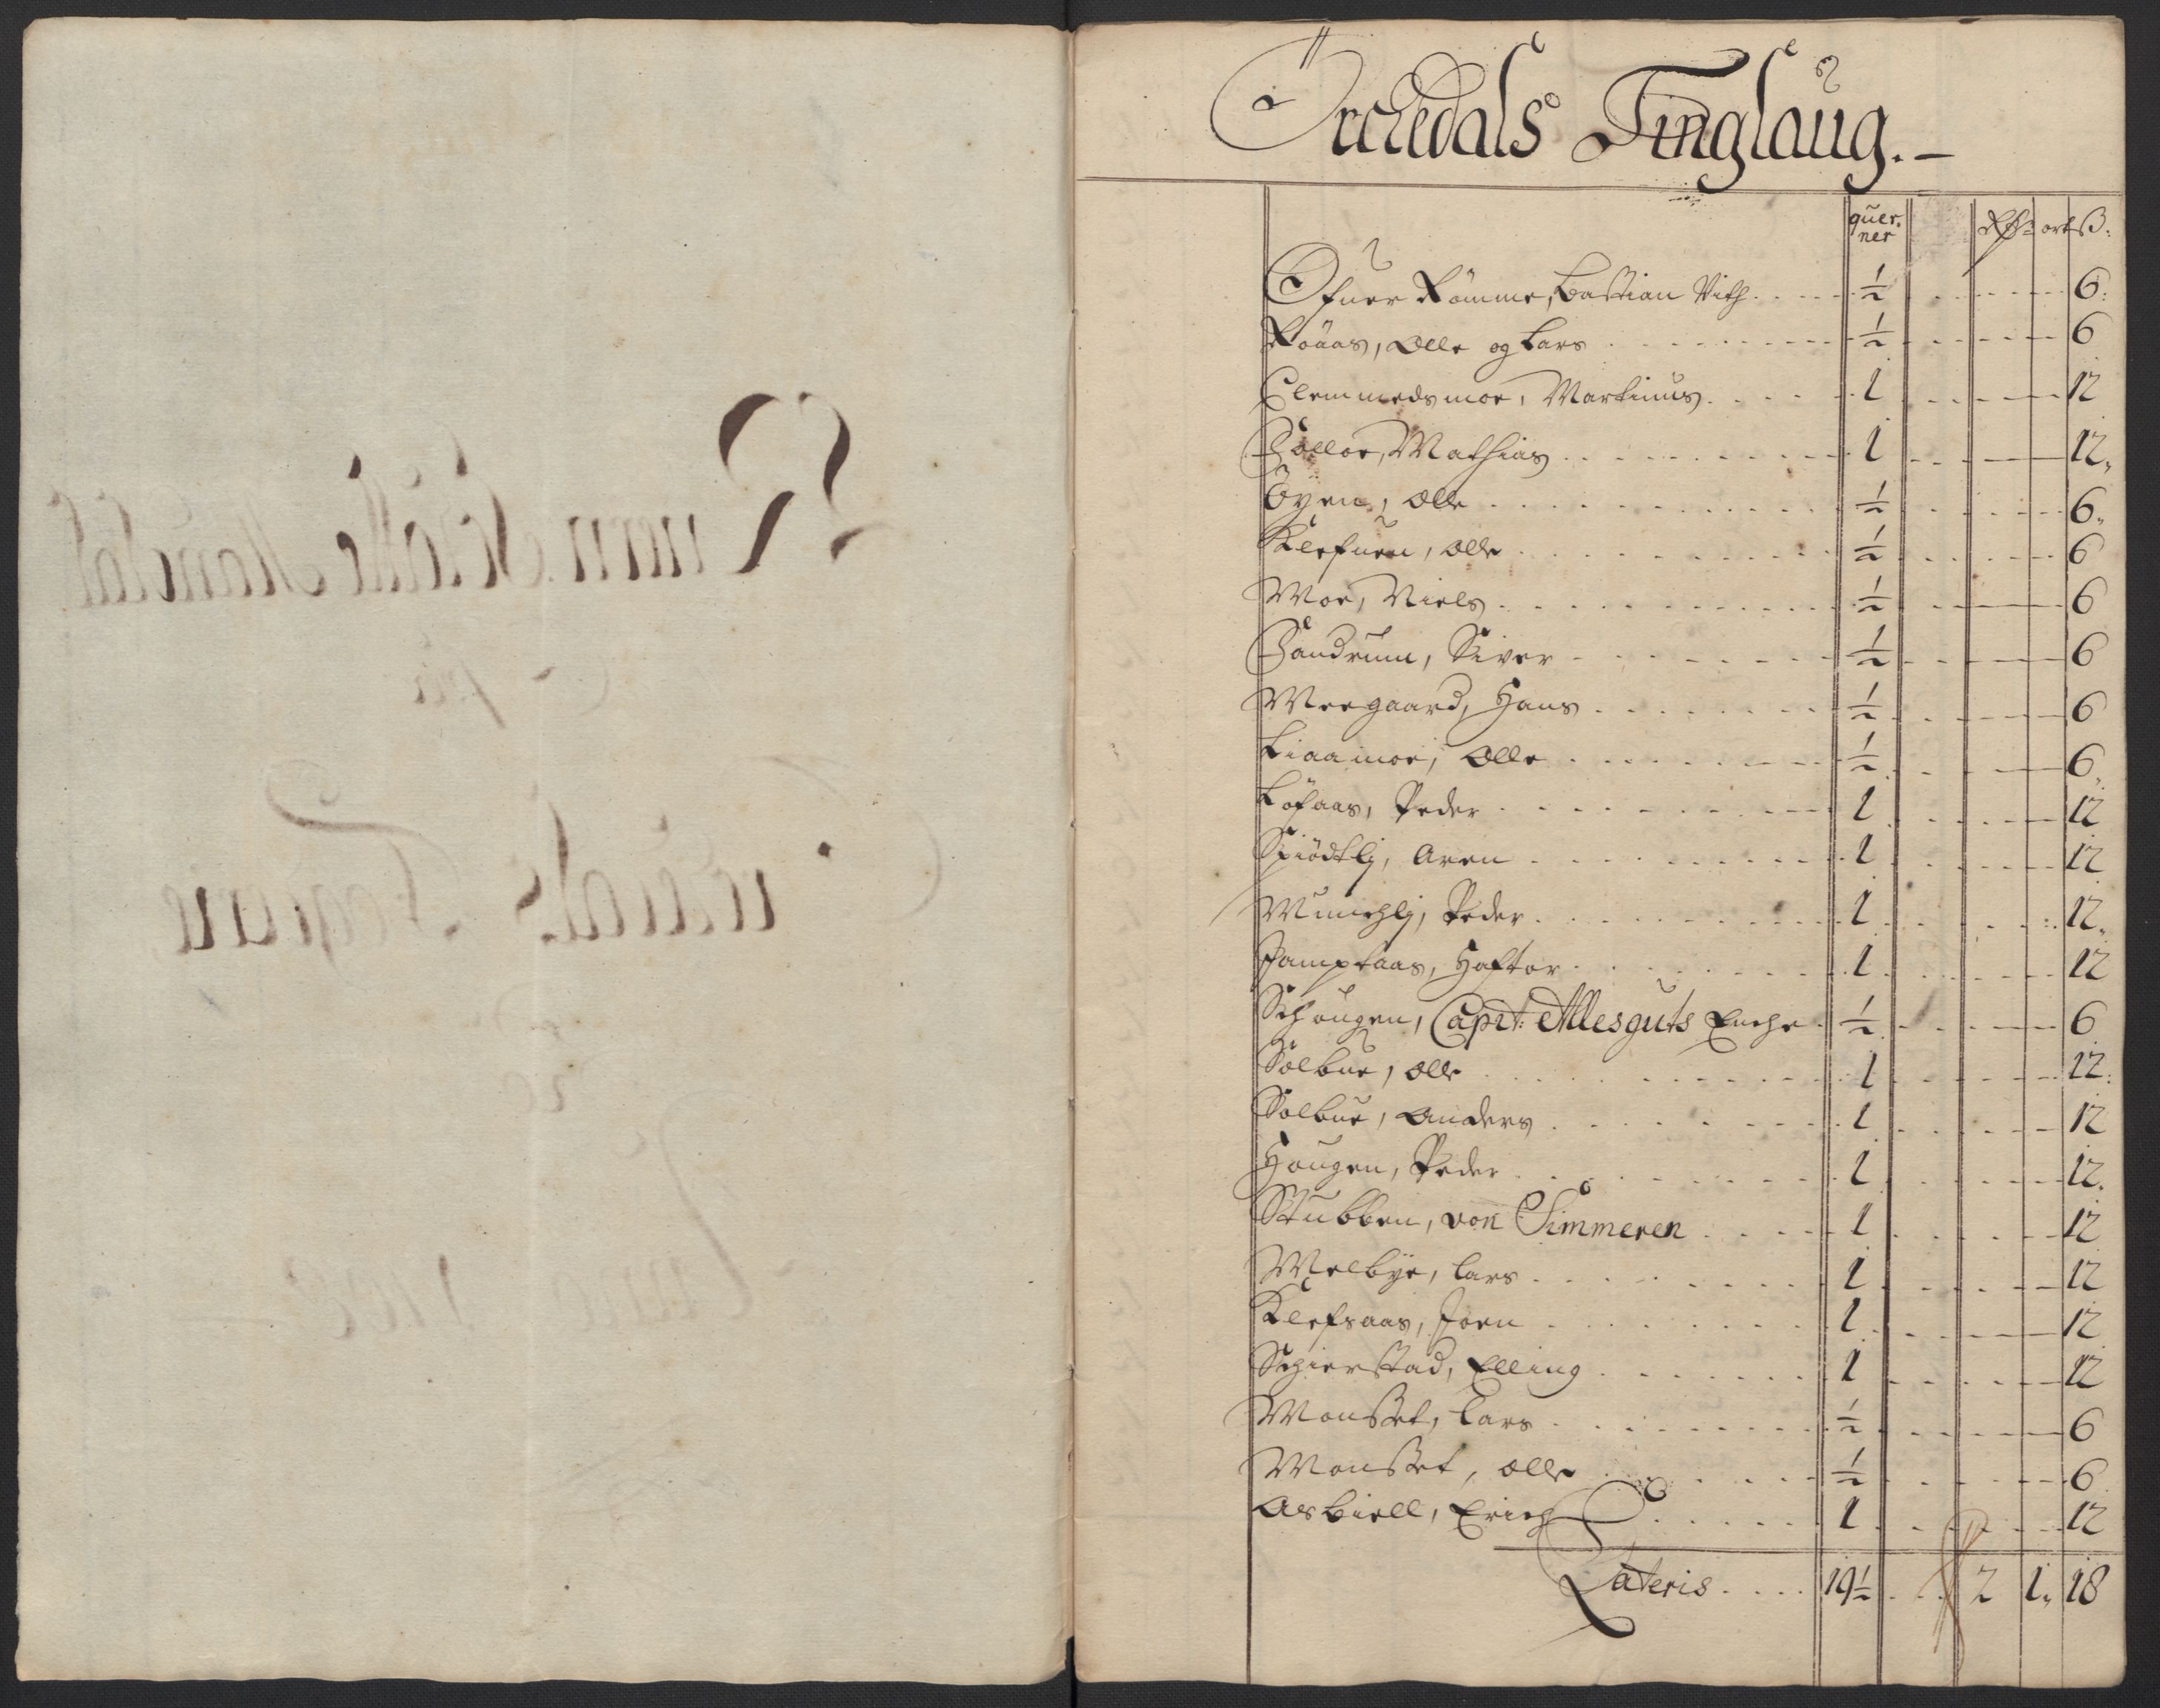 Orchedals Tinglaug.
quer-
ner
Rdr ort ß:
Ofuer Römme, Bastian Vith . . . ½ . . . 6:
Röaas, Olle og Lars . . . ½ . . . 6
Clemmedsmoe, Martinus . . . 1 . . . 12
Mathias . . . 1 . . . 12
Öyen, Olle . . . ½ . . . 6
Klefuen, Olle . . . ½ . . . 6
Moe, Niels . . . ½ . . . 6
Sandrum, Siver . . . ½ . . . 6
Meegaard, Hans . . . ½ . . . 6
Liaamoe, Olle . . . ½ . . . 6
Löfaas, Peder . . . 1 . . . 12
Spiödtlj, Aren . . . 1 . . . 12
Munchlj, Peder . . . 1 . . . 12
Jamptaas, Haftor . . . 1 . . . 12
Schougen, Capit: Allesguts Enche . ½ . . . 6
Solbue, Olle . . . 1 . . . 12:
Solbue, Anders . . . 1 . . . 12
Hougen, Peder . . . 1 . . . 12.
Stubben, von Simmeren . . . 1 . . . 12
Melbye, Lars . . . 1 . . . 12
Klefsaas, Joen . . . 1 . . . 12
Schierstad, Elling . . . 1 . . . 12
Monset, Lars . . . ½ . . . 6
Monset, Olle . . . ½ . . . 6
Asbiell, Erich . . . 1 . . . 12
Lateris . . . . 19½ . . . 2 1. 18